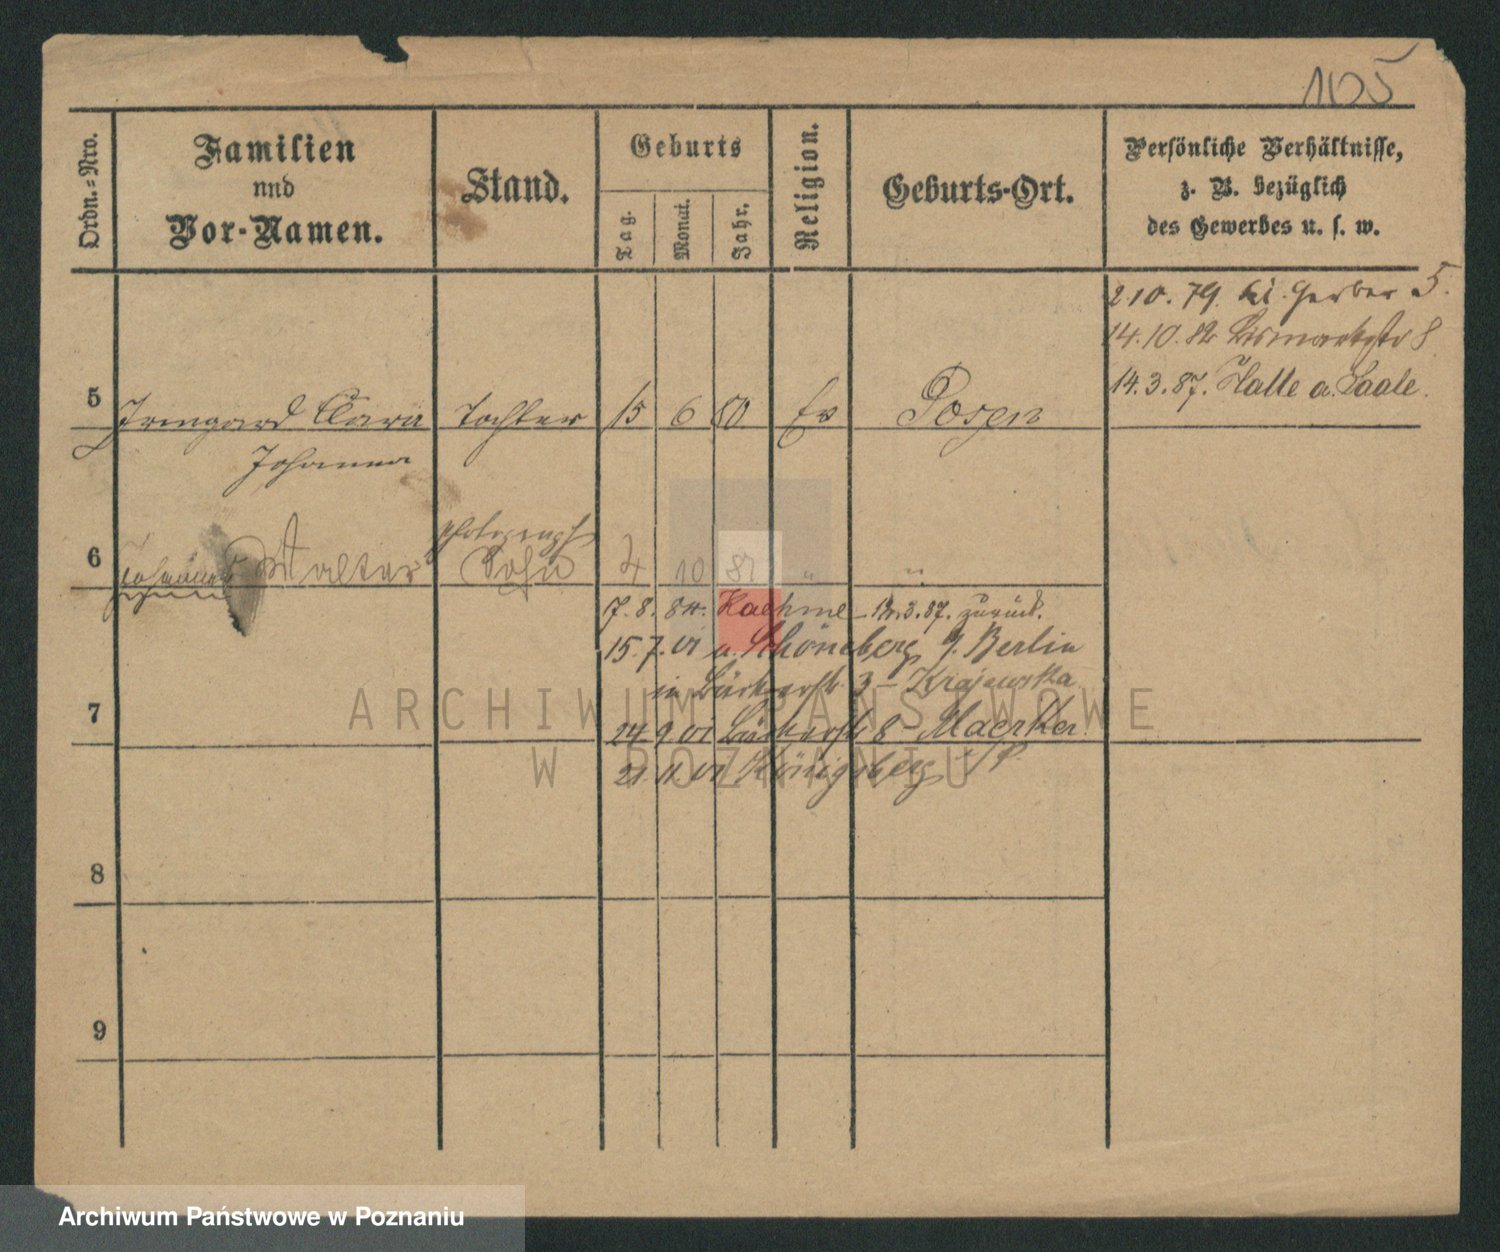 105
Ordn.=Nro.
Familien
und
Vor-Namen.
Stand.
Geburts
Tag.
Monat.
Jahr.
Religion.
Geburts-Ort.
Persönliche Verhältnisse,
z. B. bezüglich
des Gewerbes u. s. w.
2.10.79. kl. Gerber 5.
14.10.82 Bismarckstr 8
14.3.87. Halle a. Saale.
5 Irmgard Clara Tochter 15 6 80 Ev Posen
Johanna
photograph
6 Johannes Walter Sohn 4 10 82 " "
17.8.84. Kaehme 3.87. zurück.
15.7.01 a. Schöneberg b. Berlin
in 3 - Krajewska
7
24.9.01 8 - Maerker
21.11.01 Königsberg i/P.
8
9
ARCHIWUM PAŃSTWOWE
W POZNANIU
Archiwum Państwowe w Poznaniu